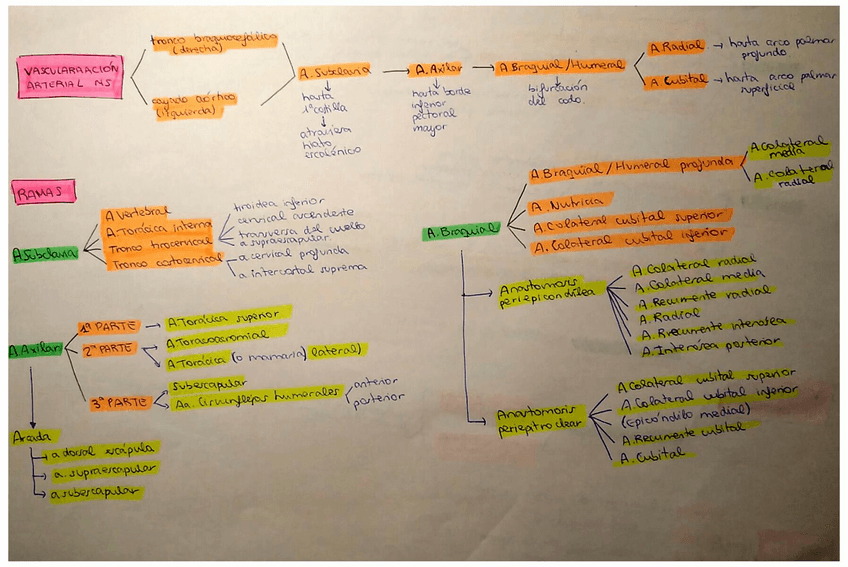 VASCULARIZACIÓN
ARTERIAL MS
tronco braquiocefálico
(derecha)
cayado aórtico
(izquierda)
A. Subclavia
hasta
1ª costilla
atraviesa
hiato
escalénico
A. Axilar
hasta borde
inferior
pectoral
mayor
A. Braquial/Humeral
bifurcación
del codo.
A. Radial → hasta arco palmar
profundo
A. Cubital → hasta arco palmar
superficial
RAMAS
A. Subclavia
A Vertebral
A. Torácica interna
Tronco tirocervical
Tronco costocervical
tiroidea inferior
cervical ascendente
transversa del cuello
a supraescapular
a cervical profunda
a intercostal suprema
A. Axilar
1ª PARTE → A. Torácica superior
2ª PARTE → A. Toracoacromial
A. Torácica (o mamaria) lateral)
3ª PARTE → subescapular
Aa. Circunflejas humerales
anterior
posterior
Arcada
a. dorsal escápula
a. supraescapular
a. subescapular
A. Braquial
A Braquial/Humeral profunda
A Colateral
media
A. Colateral
radial
A. Nutricia
A. Colateral cubital superior
A. Colateral cubital inferior
Anastomosis
periepicondílea
A. Colateral radial
A. Colateral media
A. Recurrente radial
A. Radial
A. Recurrente interósea
A. Interósea posterior
Anastomosis
periepitroclear
A. Colateral cubital superior
A. Colateral cubital inferior
(epicóndilo medial)
A. Recurrente cubital
A. Cubital